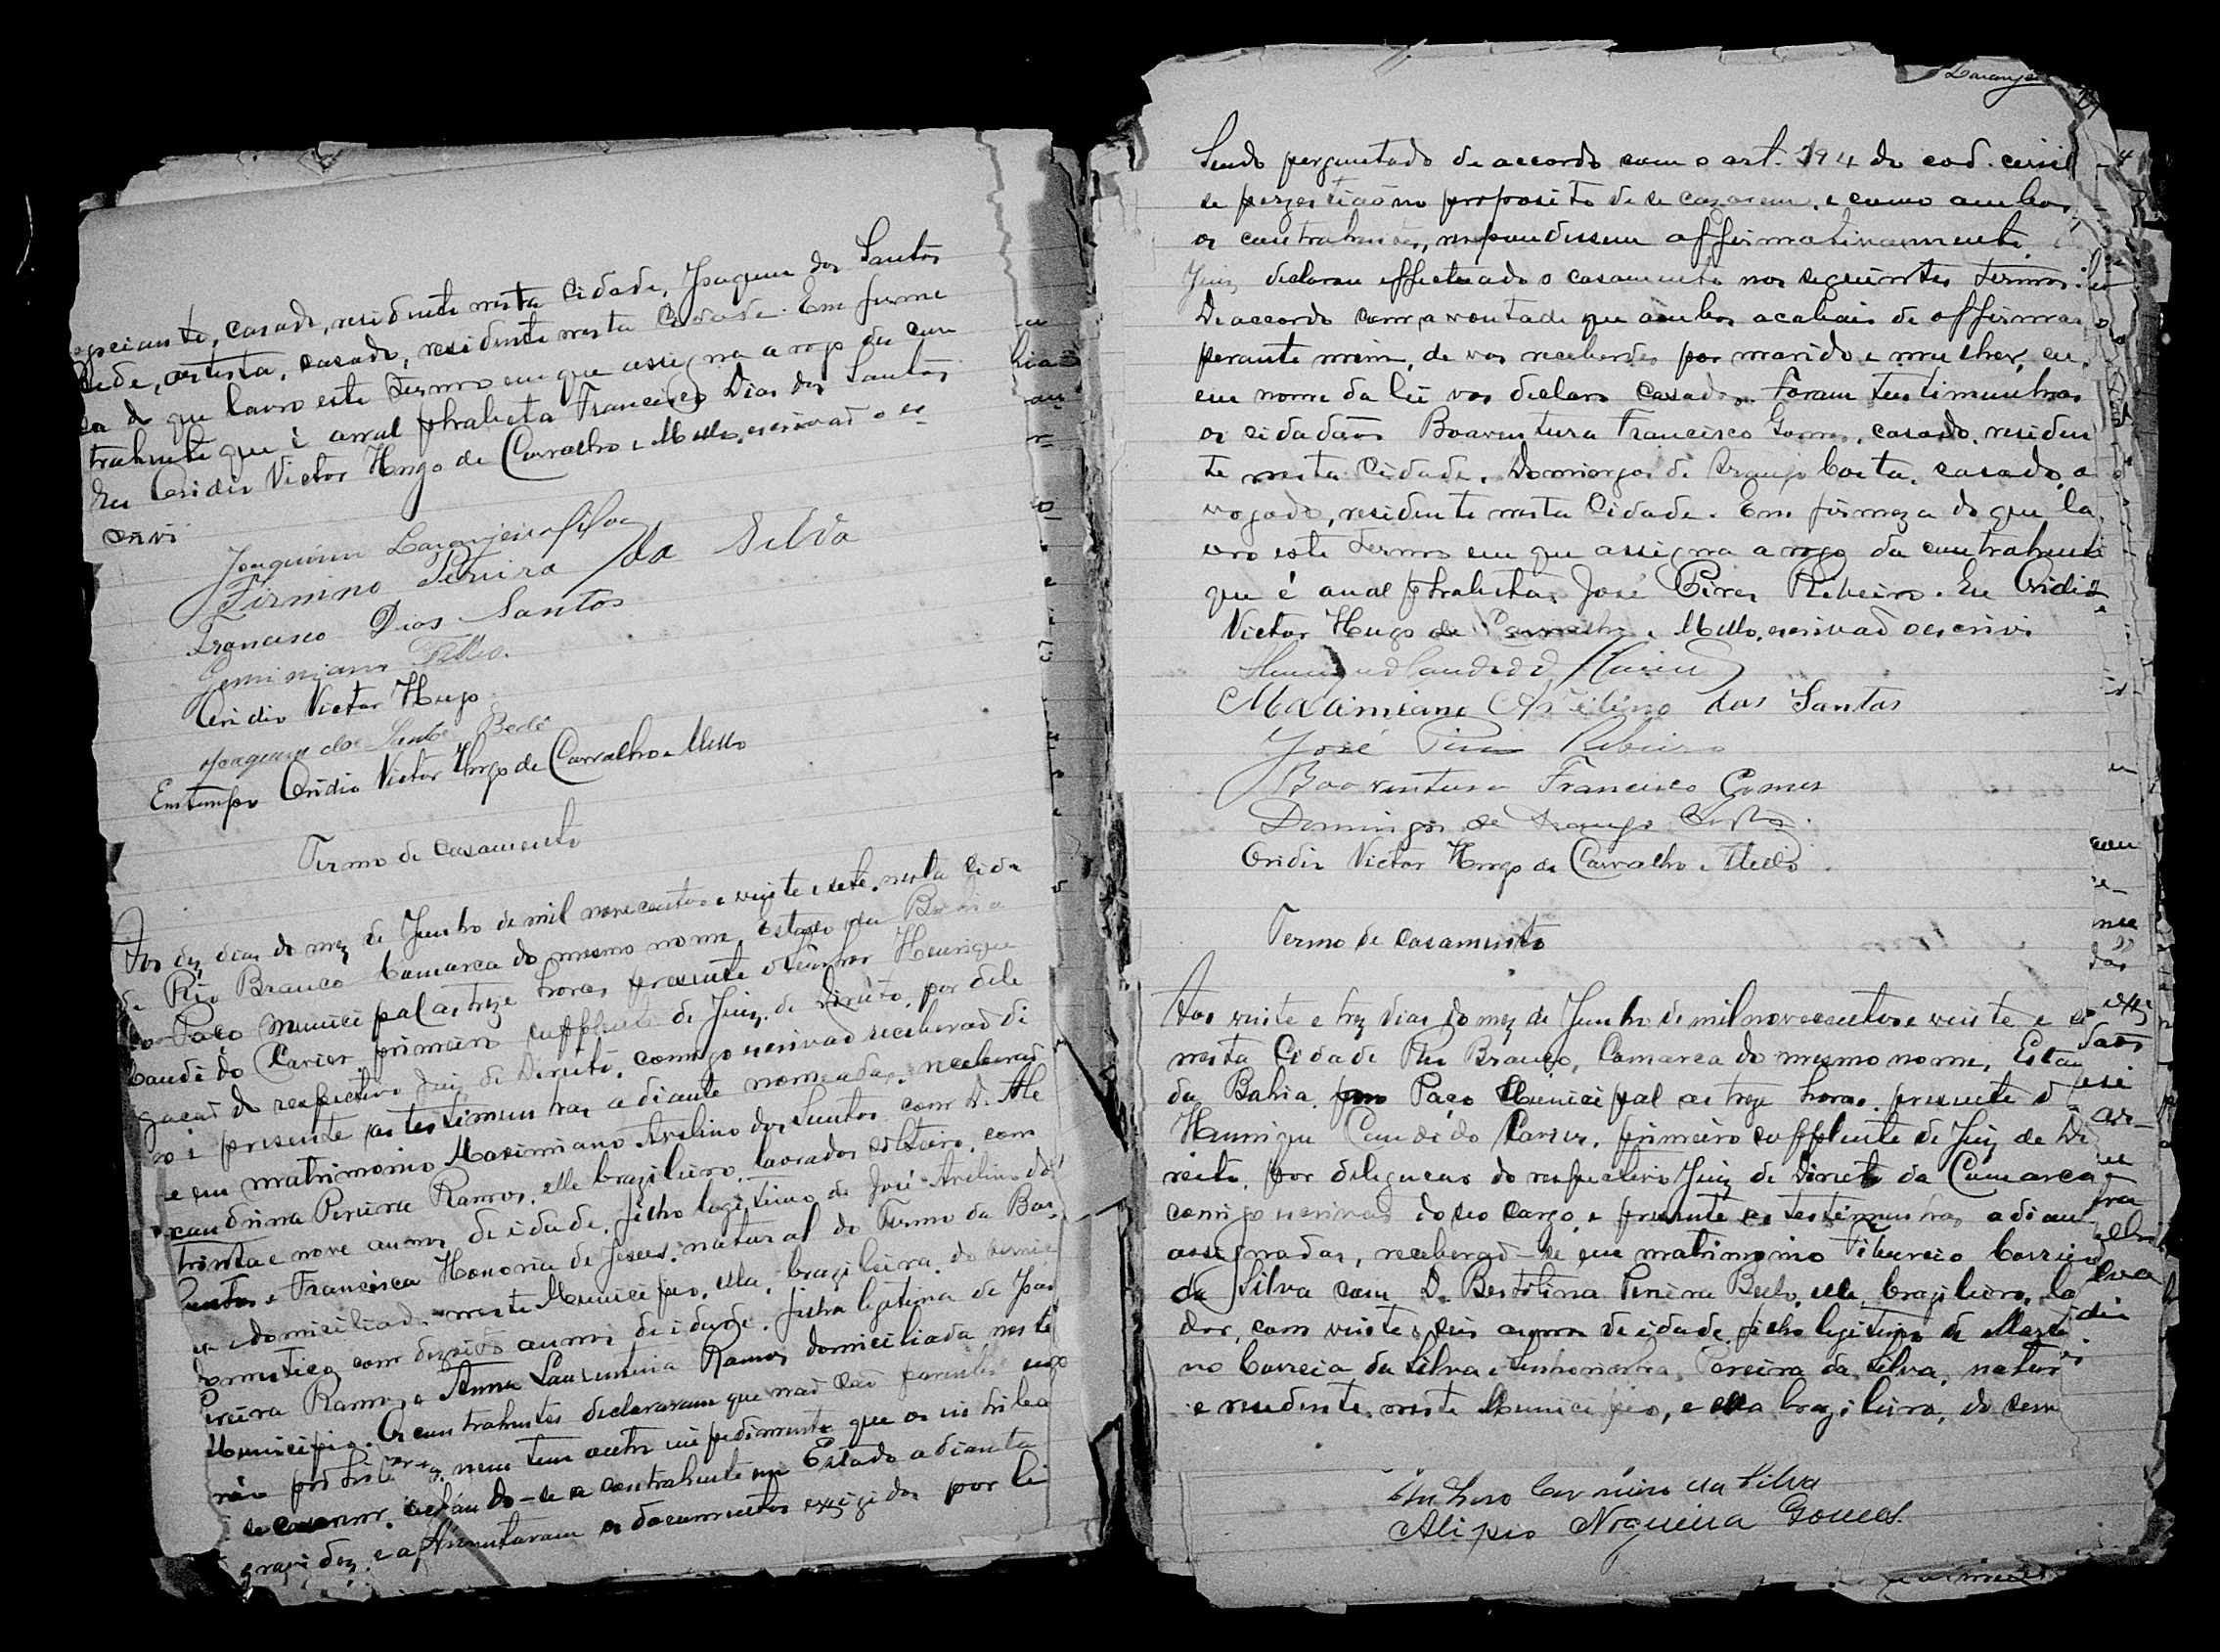 casado, residente nesta Cidade, Joaquim dos Santos
Bede, artista, casado, residente nesta Cidade. Em firme
sa do que lavro este termo em que assigna a rogo da con
trahente que é anal phabeta Francisco Dias dos Santos
Eu Oridio Victor Hugo de Carvalho e Mello, escrivaõ o es-
crevi
Joaquim Laranjeira Silva
Firmino Pereira da Silva
Francisco Dias Santos
Geminiano
Oridio Victor Hugo
Joaquim dos Santos Bedê
Em tempo Oridio Victor Hugo de Carvalho e Mello
Termo de casamento
Aos dez dias do mez de Junho de mil novecentos e vinte e sete, nesta Cida
de Rio Branco Comarca do mesmo nome, Estado da Bahia
no Paço Municipal as treze horas presente o Senhor Henrique
Candido Xavier, primeiro supplente de Juiz de Direito, por dele
gaçaõ do respectivo Juiz de Direito, comigo escrivaõ
e presente as testimunhas adiante nomeadas, receberaõ
se em matrimonio Maximiano Avelino dos Santos com D. Ale
xandrina Pereira Ramos, elle brazileiro, lavrador solteiro, com
trinta e nove annos de idade, filho legitimo de José Avelino dos
Santos e Francisca Honoria de Jesus, natural do Termo da
e domiciliado neste Municipio, ella, brazileira, do servico
domestico, com dezoito annos de idade, filha legitima de
Pereira Ramos e Anna Laurentina Ramos domiciliada neste
Municipio. Os contrahentes declararam que naõ saõ parentes
nem tem outro impedimento que os inhiba
de casarem, achando-se a contrahente em Estado adiantado
gravidez, e apresentaram os documentos exigidos por lei
Laranjeira
Sendo perguntado de accordo com o art. 194 do cod. civil
se persestiaõ no proposito de se casarem, e como ambos
os contrahentes, respondessem affirmativamente, o
Juiz declarou effectuado o casamento nos seguintes termos:
De accordo com a vontade que ambos acabais de affirmar
perante mim, de vos receberdes por marido e mulher, eu,
em nome da lei vos declaro casados. Foram testimunhas
os cidadãos Boaventura Francisco Gomes, casado, residen
te nesta Cidade, Domingos de Araujo Costa, casado, a
vogado, residente nesta Cidade. Em firmeza do que la
vro este termo em que assigna a rogo da contrahente
que é anal phabeta, José Pires Ribeiro. Eu Oridio
Victor Hugo de Carvalho e Mello, escrivaõ o escrevi
Henrique Candido Xavier
Maximiano Avelino dos Santos
José Pires Ribeiro
Boaventura Francisco Gomes
Domingos de Araujo Costa.
Oridio Victor Hugo de Carvalho e Mello
Termo de casamento
Aos vinte e trez dias do mez de Junho de mil novecentos e vinte e
nesta Cidade Rio Branco, Comarca do mesmo nome, Estado
da Bahia, Paço Municipal as treze horas, presente o
Henrique Candido Xavier, primeiro supplente de Juiz de Di
reito, por delegacaõ do respectivo Juiz de Direito da Comarca
comigo escrivaõ do seo cargo, e presente as testimunhas adiante
assignadas, receberaõ-se em matrimonio Tiburcio Correia
da Silva com D. Bertolina Pereira Bello, elle brazileiro, la
dor, com vinte e seis annos de idade, filho legitimo de
no Correia da Silva e Senhorinha Pereira da Silva, natur
e residente neste Municipio, e ella brazileira, do serv
Carneiro da Silva
Alipio Nogueira Gomes.